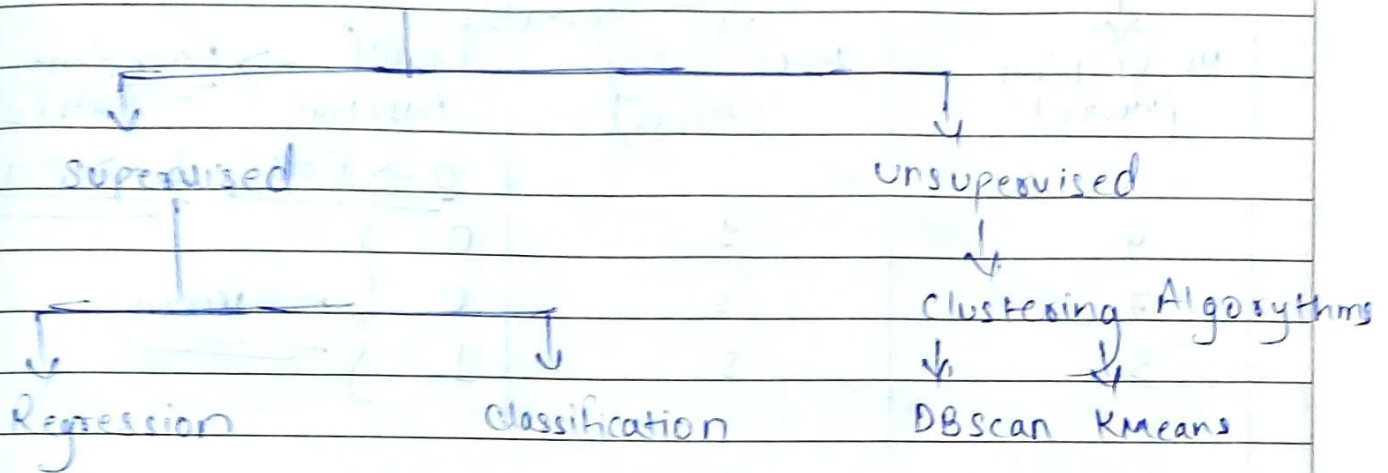 Supervised Unsupervised
Clustering Algorythms
Regression Classification DBScan KMeans